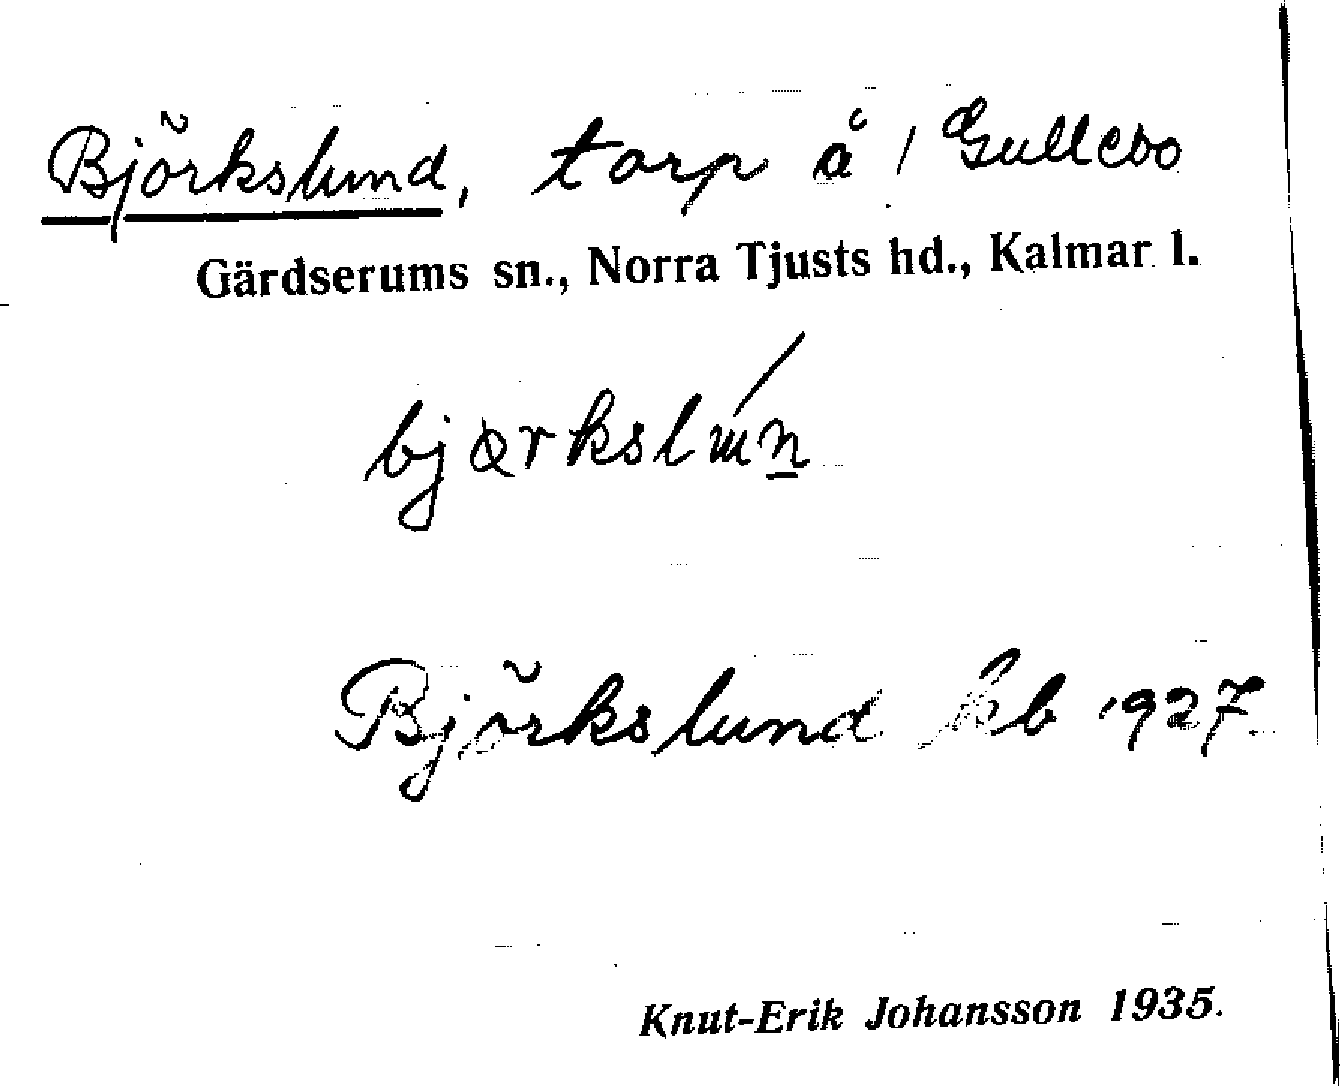 Björkslund, torp å / Gullebo
Gärdserums sn., Norra Tjusts hd., Kalmar l.
Björkslund kb 1927
Knut-Erik Johansson 1935.